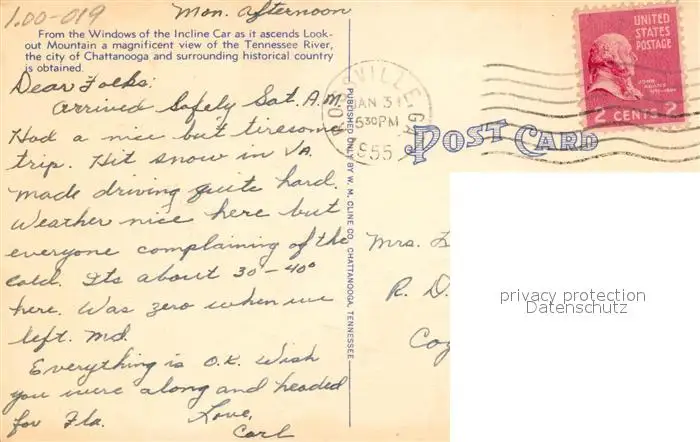 1.00-019
Mon. Afternoon
From the Windows of the Incline Car as it ascends Look-
out Mountain a magnificent view of the Tennessee River,
the city of Chattanooga and surrounding historical country
is obtained.
Dear Folks:
Arrived Safely Sat. A.M.
Had a nice but tiresome
trip. Hit snow in VA.
made driving quite hard.
Weather nice here but
everyone complaining of the
cold. Its about 30°-40°
here. Was zero when we
left. Md.
Everything is O.K. Wish
you were along and headed
for Fla.
Love,
Carl
PUBLISHED ONLY BY W. M. CLINE CO., CHATTANOOGA, TENNESSEE
JAN 31
530PM
1955
POST CARD
UNITED
STATES
POSTAGE
JOHN
ADAMS
2 CENTS 2
Mrs.
R. D.
privacy protection
Datenschutz